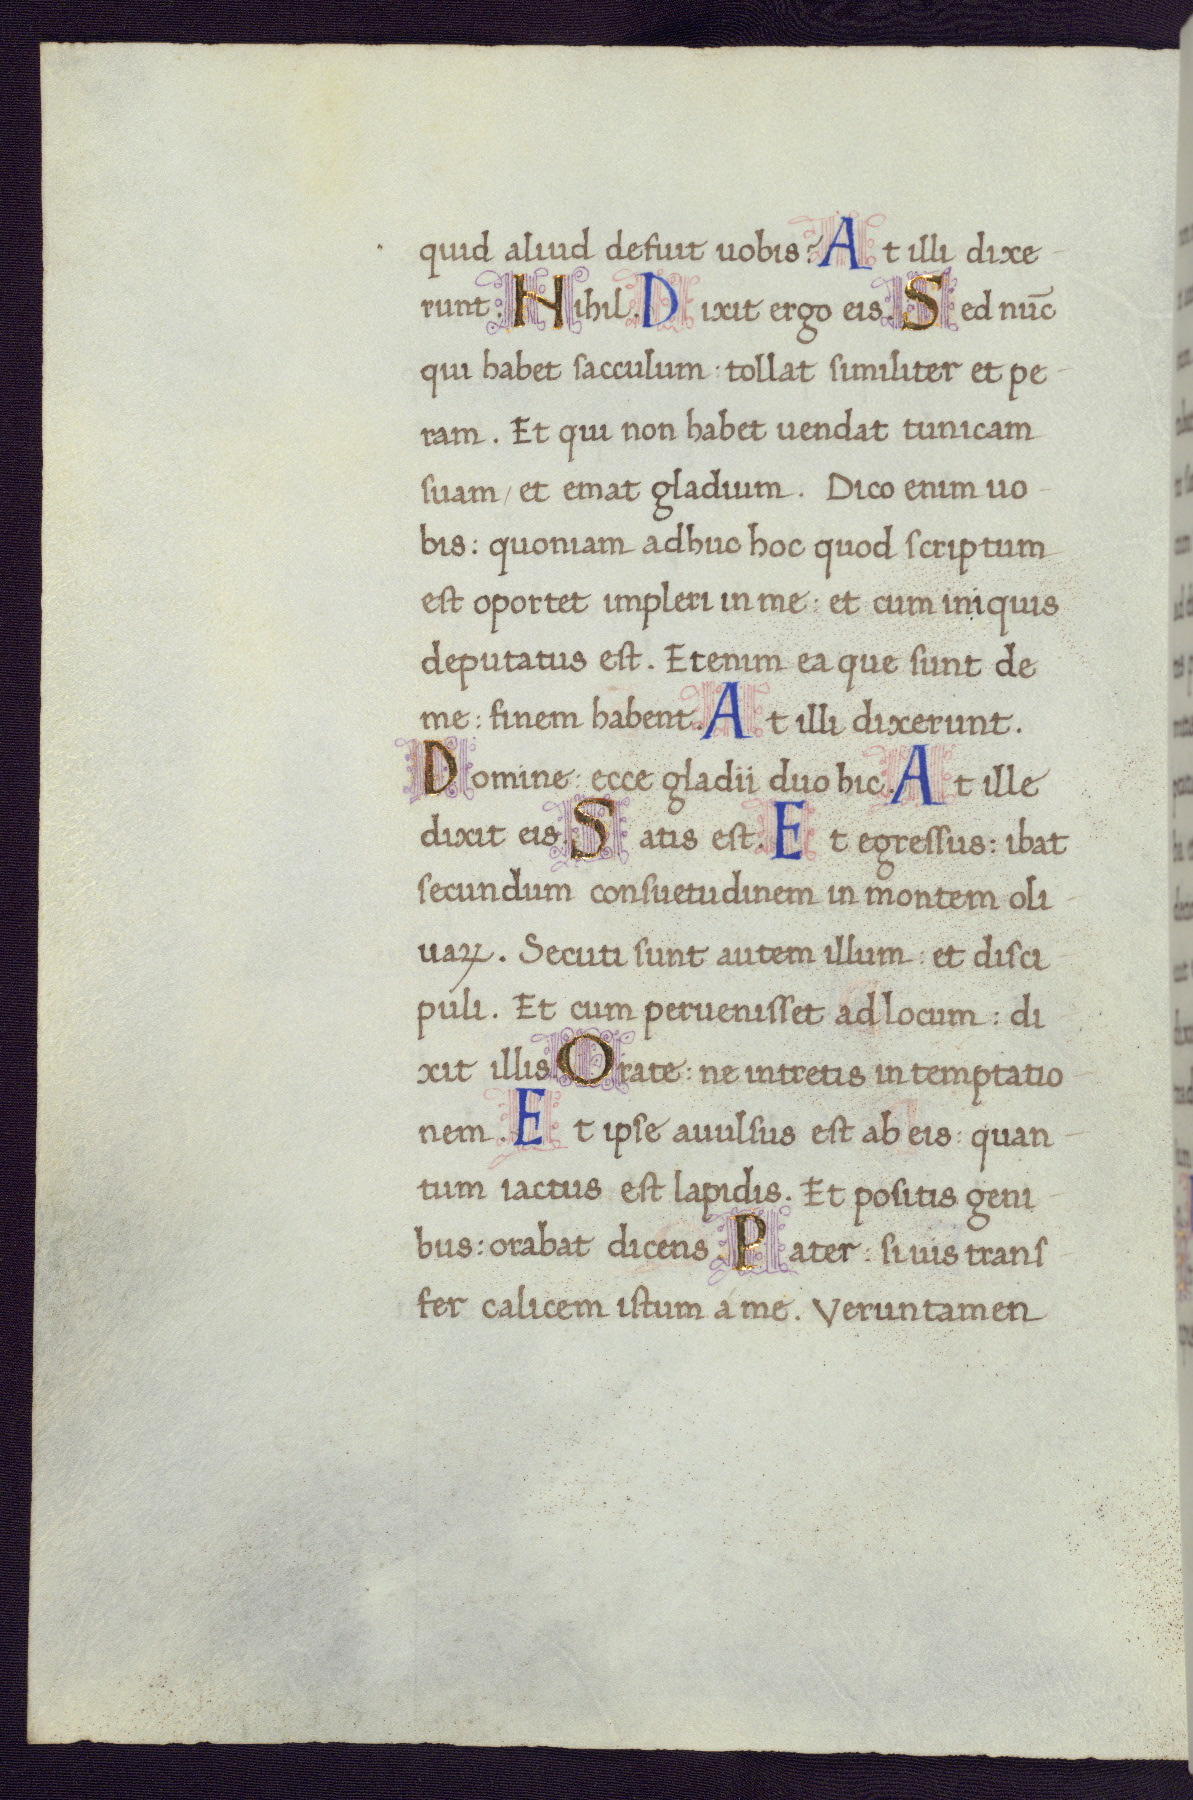 quid aliud defuit uobis? At illi dixe-
runt: Nihil. Dixit ergo eis. Sed nūc
qui habet sacculum: tollat similiter et pe-
ram. Et qui non habet uendat tunicam
suam / et emat gladium. Dico enim uo-
bis: quoniam adhuc hoc quod scriptum
est oportet impleri in me: et cum iniquis
deputatus est. Etenim ea que sunt de
me: finem habent. At illi dixerunt.
Domine: ecce gladii duo hic. At ille
dixit eis. Satis est. Et egressus: ibat
secundum consuetudinem in montem oli-
uaꝝ. Secuti sunt autem illum: et disci-
puli. Et cum peruenisset ad locum: di-
xit illis. Orate: ne intretis in temptatio-
nem. Et ipse auulsus est ab eis: quan-
tum iactus est lapidis. Et positis geni-
bus: orabat dicens. Pater: si uis trans-
fer calicem istum a me. Veruntamen